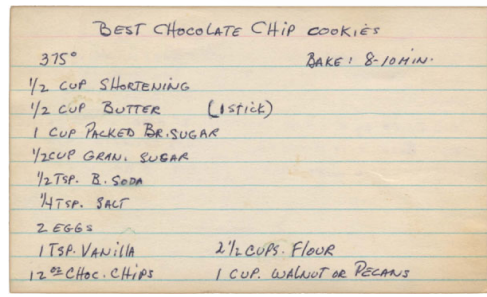 BEST CHOCOLATE CHIP COOKIES
375° BAKE: 8-10 MIN.
1/2 CUP SHORTENING
1/2 CUP BUTTER (1 stick)
1 CUP PACKED BR. SUGAR
1/2 CUP GRAN. SUGAR
1/2 TSP. B. SODA
1/4 TSP. SALT
2 EGGS
1 TSP. VANILLA 2 1/2 CUPS. FLOUR
12 oz CHOC. CHIPS 1 CUP. WALNUT OR PECANS